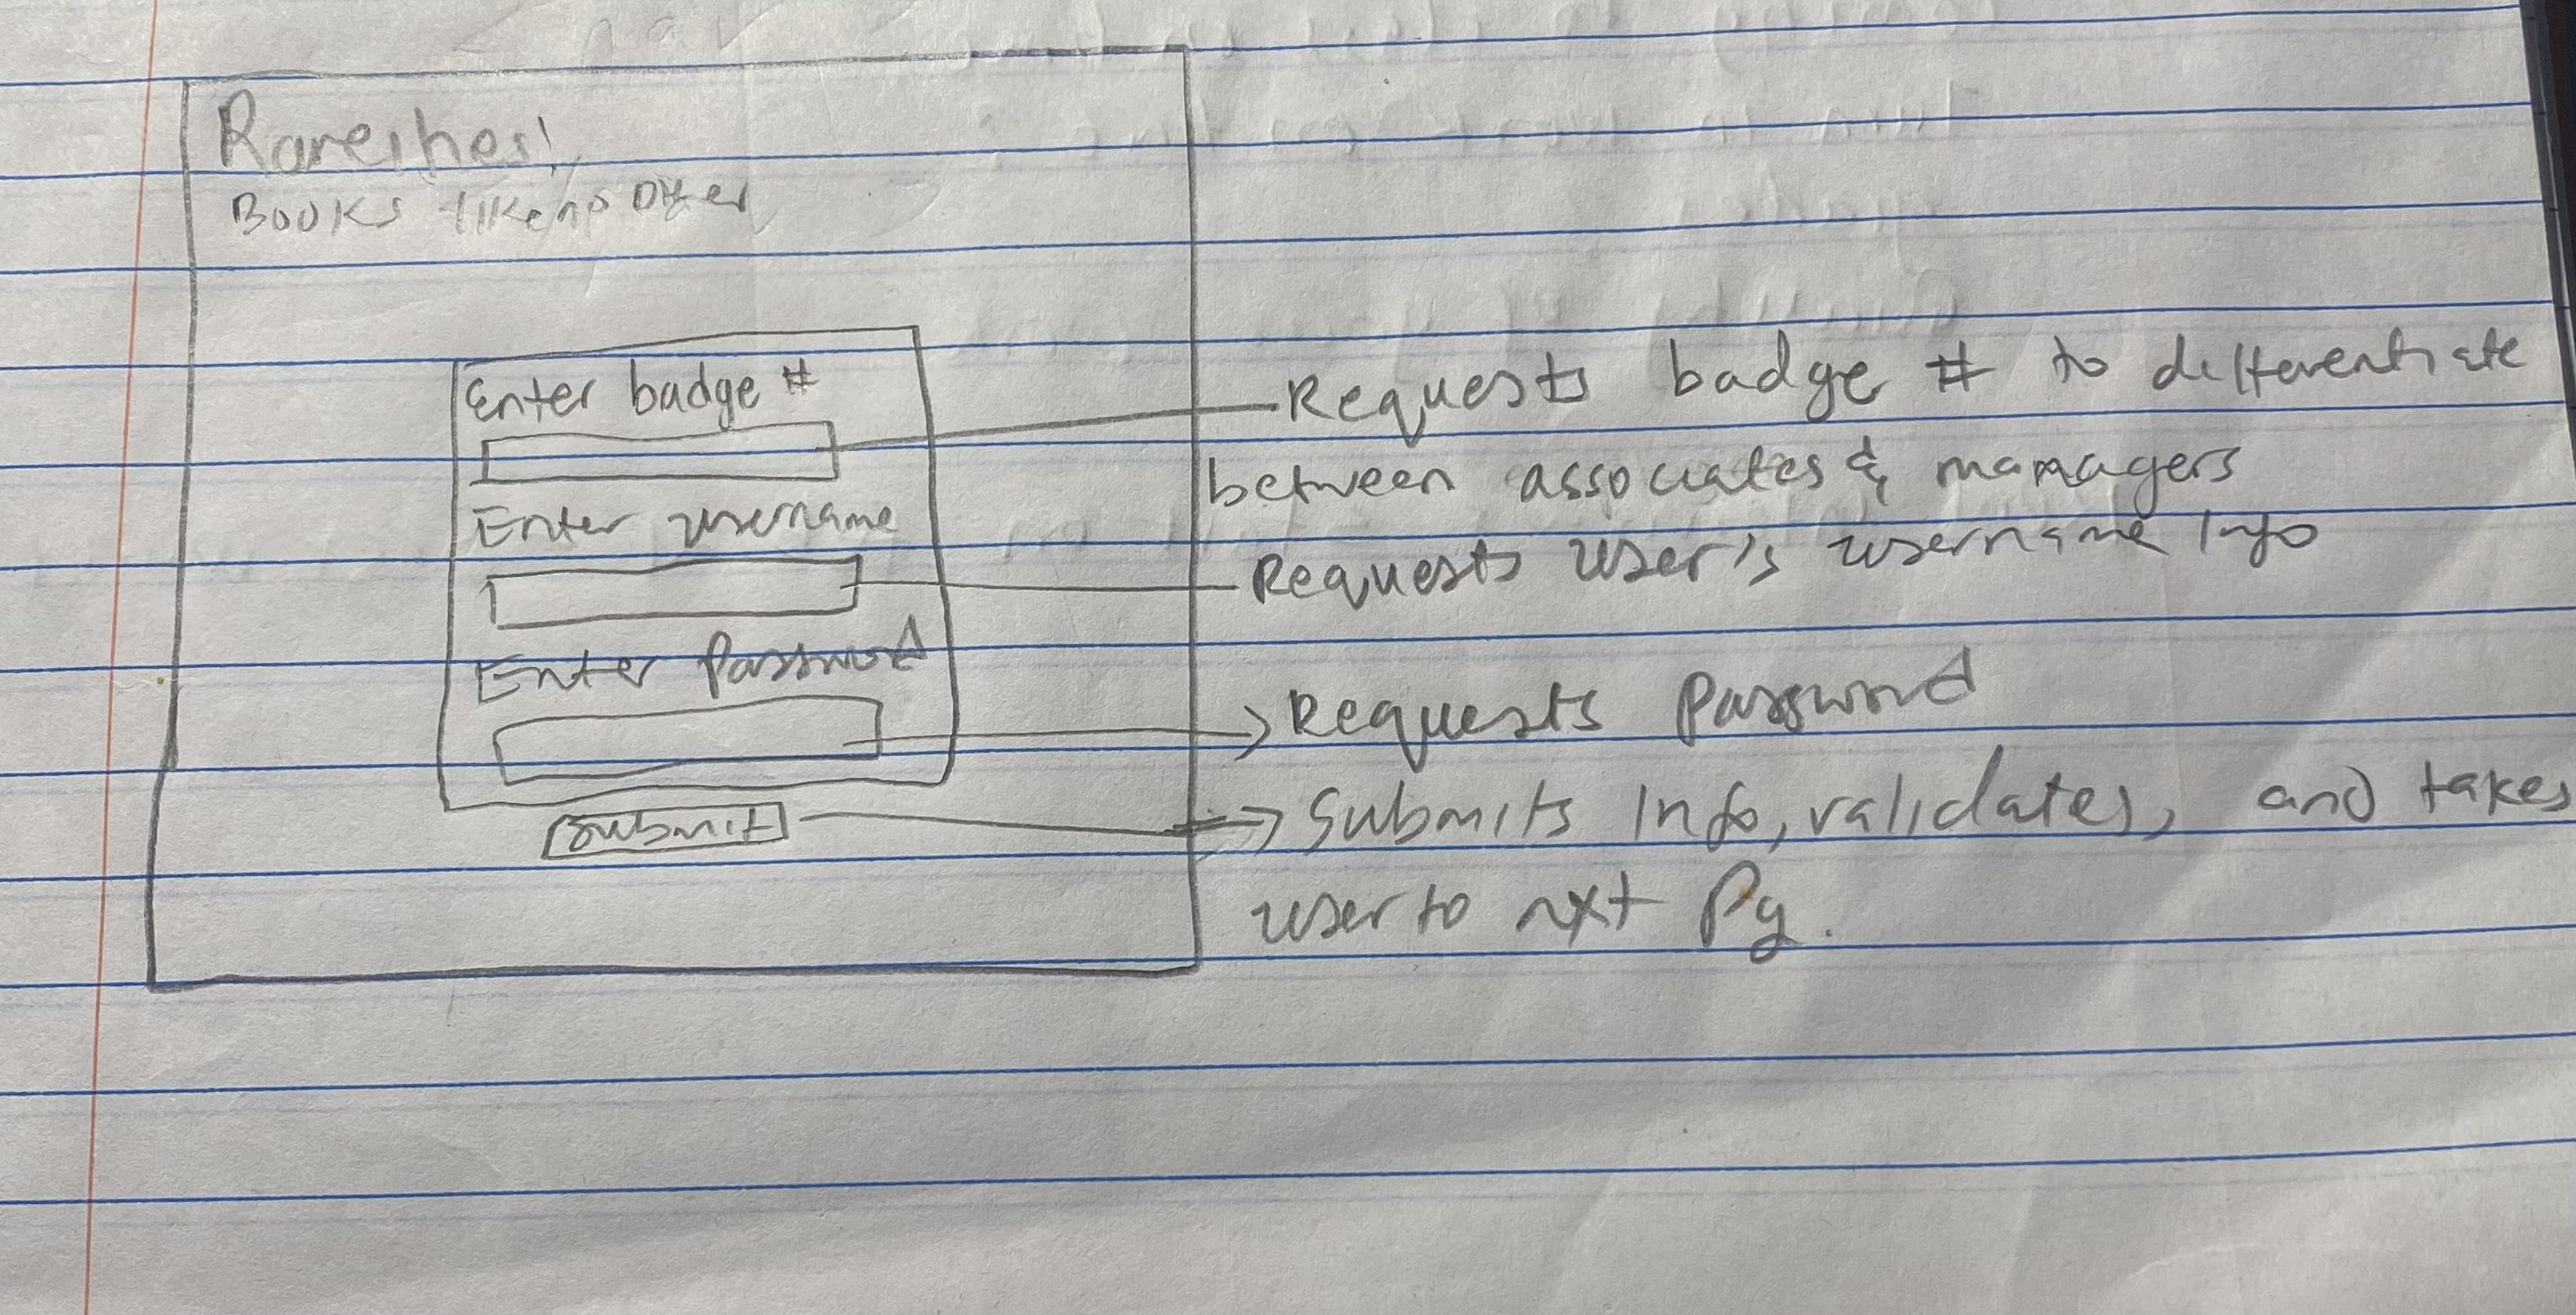 Rareihes!
Books like no other
Enter badge #
Enter username
Enter Password
Submit
Requests badge # to differentiate
between associates & managers
Requests user's username Info
Requests Password
Submits Info, validates, and takes
user to nxt Pg.